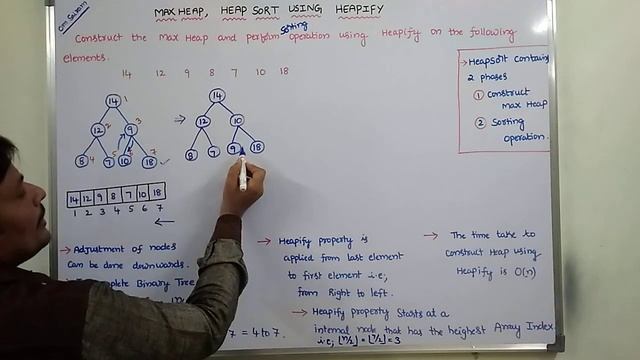 Om Sairam
MAX HEAP, HEAP SORT USING HEAPIFY
Construct the Max Heap and perform sorting operation using Heapify on the following
elements.
14 12 9 8 7 10 18
→ Heapsort contains
2 phases
① Construct
Max Heap
② Sorting
Operation.
14 1
12 2 9 3
8 4 7 5 10 6 18 7
⇒
14
12 10
8 7 9 18
14 12 9 8 7 10 18
1 2 3 4 5 6 7
←
→ Adjustment of nodes
Can be done downwards.
Complete Binary Tree
7 = 4 to 7.
→ Heapify property is
applied from last element
to first element i.e;
from Right to left.
→ Heapify property Starts at a
internal node that has the highest Array Index.
i.e; ⌊n/2⌋ = ⌊7/2⌋ = 3
→ The time take to
Construct Heap using
Heapify is O(n)